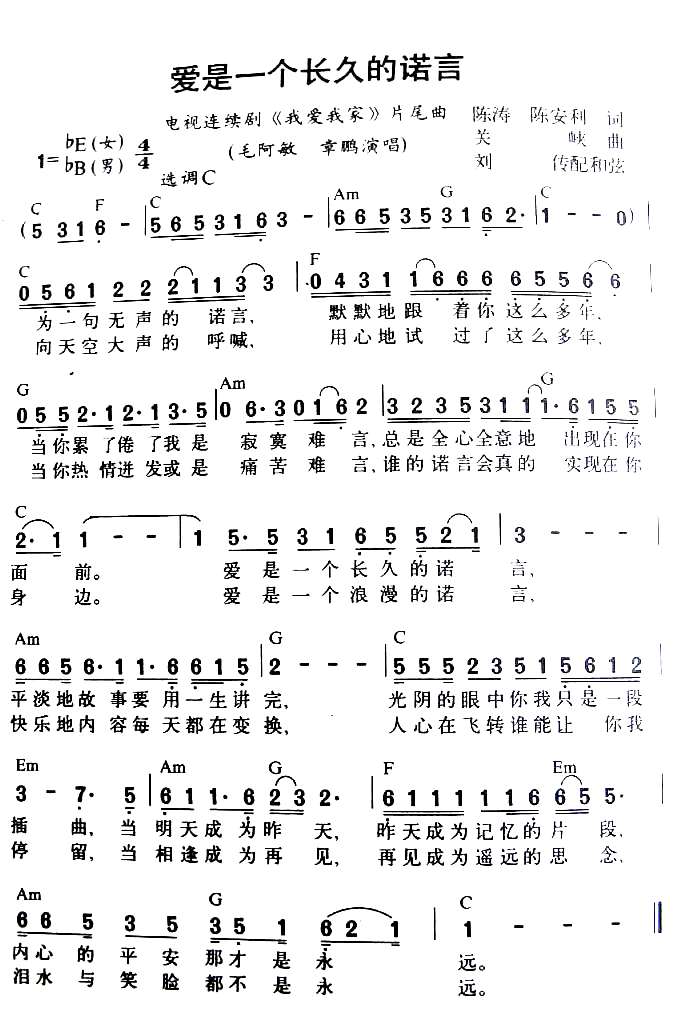 爱是一个长久的诺言
电视连续剧《我爱我家》片尾曲 陈涛 陈安利 词
1=bE(女) bB(男) 4/4 (毛阿敏 章鹏演唱) 关峡 曲
选调C 刘传配和弦
C F C Am G C
(5 3 1 6 - | 5 6 5 3 1 6 3 - | 6 6 5 3 5 3 1 6 2· | 1 - - 0) |
C F
0 5 6 1 2 2 2 1 1 3 3 | 0 4 3 1 1 6 6 6 6 5 5 6 6 |
为一句无声的 诺言, 默默地跟 着你这么多年,
向天空大声的 呼喊, 用心地试 过了这么多年,
G Am G
0 5 5 2· 1 2· 1 3· 5 | 0 6· 3 0 1 6 2 | 3 2 3 5 3 1 1 1· 6 1 5 5 |
当你累了倦了我是 寂寞难 言,总是全心全意地 出现在你
当你热情迸发或是 痛苦难 言,谁的诺言会真的 实现在你
C
2· 1 1 - - | 1 5· 5 3 1 6 5 5 2 1 | 3 - - - |
面 前。 爱是一个长久的诺 言,
身 边。 爱是一个浪漫的诺 言,
Am G C
6 6 5 6· 1 1· 6 6 1 5 | 2 - - - | 5 5 5 2 3 5 1 5 6 1 2 |
平淡地故事要用一生讲 完, 光阴的眼中你我只是一段
快乐地内容每天都在变 换, 人心在飞转谁能让 你我
Em Am G F Em
3 - 7· 5 | 6 6 1 1· 6 2 3 2· | 6 1 1 1 1 1 1 6 6 5 5· |
插曲,当 明天成为昨 天, 昨天成为记忆的片 段,
停留,当 相逢成为再 见, 再见成为遥远的思 念,
Am G C
6 6 5 3 5 3 5 1 6 2 1 | 1 - - - ‖
内心的 平安那才是永 远。
泪水与 笑脸都不是永 远。